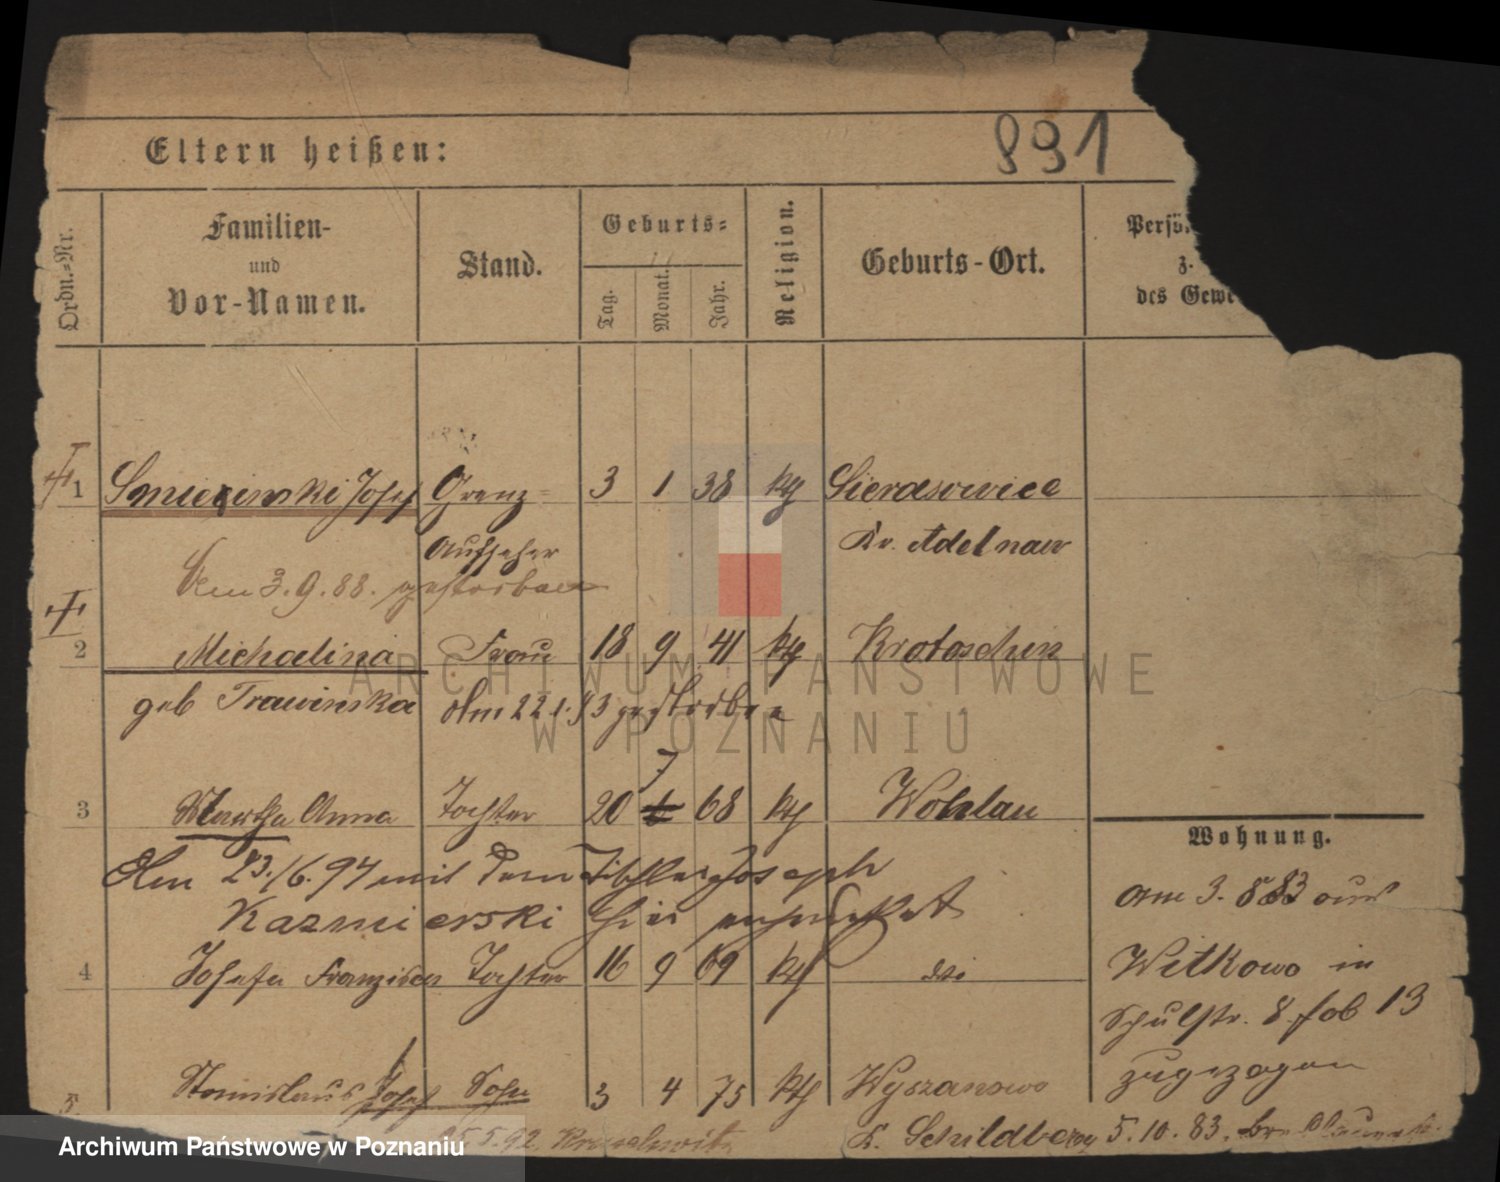 891
Eltern heißen:
Ordn.-Nr.
Familien-
und
Vor-Namen.
Stand.
Geburts-
Tag.
Monat.
Jahr.
Religion.
Geburts-Ort.
Persö
z.
des Gewe
1 Josef Grenz- 3 1 38 kth Sierasowice
Aufseher Kr. Adelnau
Am 3.9.88. gestorben
2 Michalina Frau 18 9 41 kth Krotoschin
geb Trawinska Am 22.1.93 gestorben
7
3 Martha Anna Tochter 20 6 68 kth Wohlau
Wohnung.
Am 23./6.94 mit dem Tischler Joseph
Kazmierski hier
am 3. 8 83 aus
4 Josefa Franziska Tochter 16 9 69 kth
Witkowo in
Schulstr. 8 fob 13
zugezogen
5 Stanislaus Josef Sohn 3 4 75 kth Wyszanowo
K. Schildberg 5.10.83.
ARCHIWUM PAŃSTWOWE
W POZNANIU
Archiwum Państwowe w Poznaniu